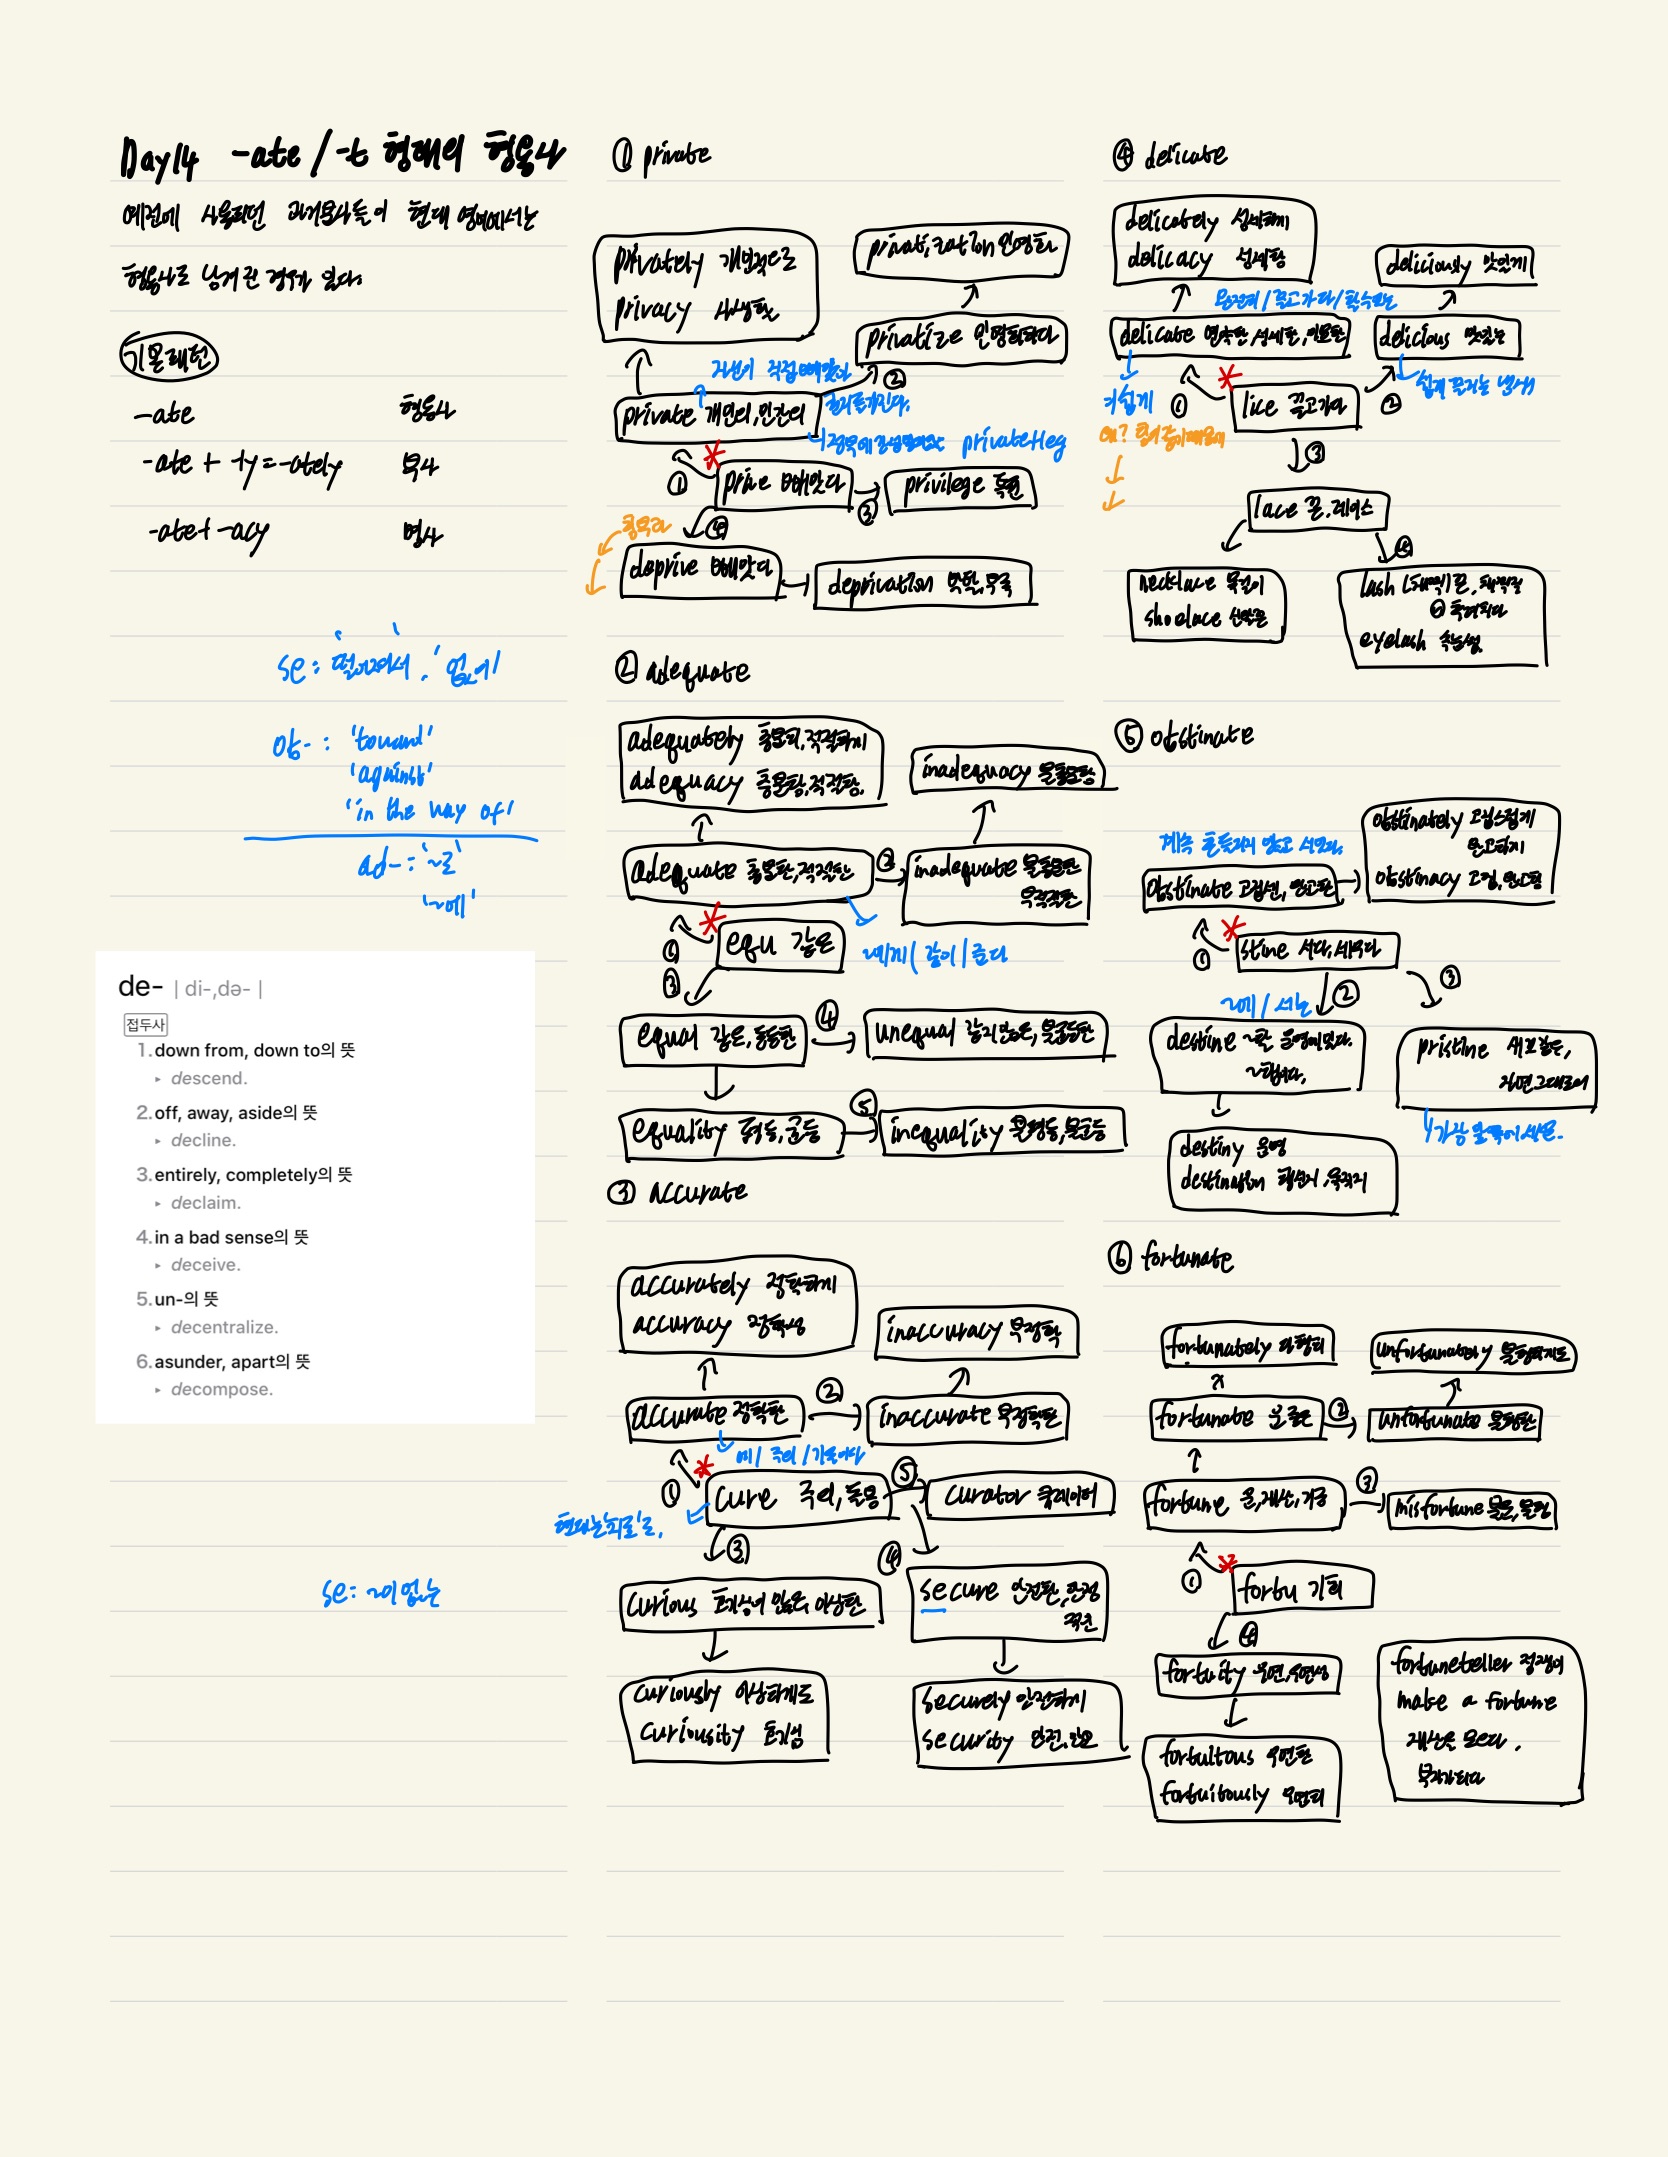 Day14 -ate / -t 형태의 형용사
예전에 사용되던 과거분사들이 현대 영어에서는
형용사로 남겨진 경우가 있다.
기본패턴
-ate 형용사
-ate + ly = -ately 부사
-ate + -acy 명사
se : '떨어져서', '없이'
ob- : 'toward'
'against'
'in the way of'
ad- : '~로'
'~에'
de- | di-,də- |
접두사
1. down from, down to의 뜻
▸ descend.
2. off, away, aside의 뜻
▸ decline.
3. entirely, completely의 뜻
▸ declaim.
4. in a bad sense의 뜻
▸ deceive.
5. un-의 뜻
▸ decentralize.
6. asunder, apart의 뜻
▸ decompose.
se: ~이 없는
① private
privately 개인적으로
privacy 사생활
privatization 민영화
privatize 민영화하다
private 개인의, 민간의
②
privateleg
①
prive 빼앗다
③
privilege 특권
④
deprive 빼앗다
deprivation 박탈, 부족
② adequate
adequately 충분히, 적절하게
adequacy 충분함, 적절함.
inadequacy 불충분함
adequate 충분한, 적절한
②
inadequate 불충분한
부적절한
①
equ 같은
~에게 / 같이 / 준다
③
equal 같은, 동등한
④
unequal 같지 않은, 불공평한
equality 평등, 균등
⑤
inequality 불평등, 불균등
③ accurate
accurately 정확하게
accuracy 정확성
inaccuracy 부정확
accurate 정확한
②
inaccurate 부정확한
에 / 주의 / 기울이다
①
cure 주의, 돌봄
⑤
curator 큐레이터
③
④
curious 호기심이 많은, 이상한
secure 안전한, 안정
curiously 이상하게도
curiousity 호기심
securely 안전하게
security 안전, 안보
④ delicate
delicately 섬세하게
delicacy 섬세함
deliciously 맛있게
delicate 연약한, 섬세한, 미묘한
delicious 맛있는
①
lice 끌고가다
②
③
lace 끈, 레이스
④
necklace 목걸이
shoelace 신발끈
eyelash 속눈썹
⑤ obstinate
obstinately 고집스럽게
완고하게
obstinacy 고집, 완고함
계속 흔들리지 않고 서있다.
obstinate 고집센, 완고한
①
stine 서다, 세우다
~에 / 서는
②
③
destine ~할 운명이었다.
pristine 새것같은,
자연 그대로의
destiny 운명
destination 행선지, 목적지
⑥ fortunate
fortunately 다행히
unfortunately 불행하게도
fortunate 운좋은
②
unfortunate 불행한
fortune 운, 재산, 거금
③
misfortune 불운, 불행
①
fortu 기회
④
fortuity 우연, 우연성
fortuitous 우연한
fortuitously 우연히
fortuneteller 점쟁이
make a fortune
재산을 모으다.
부자가 되다